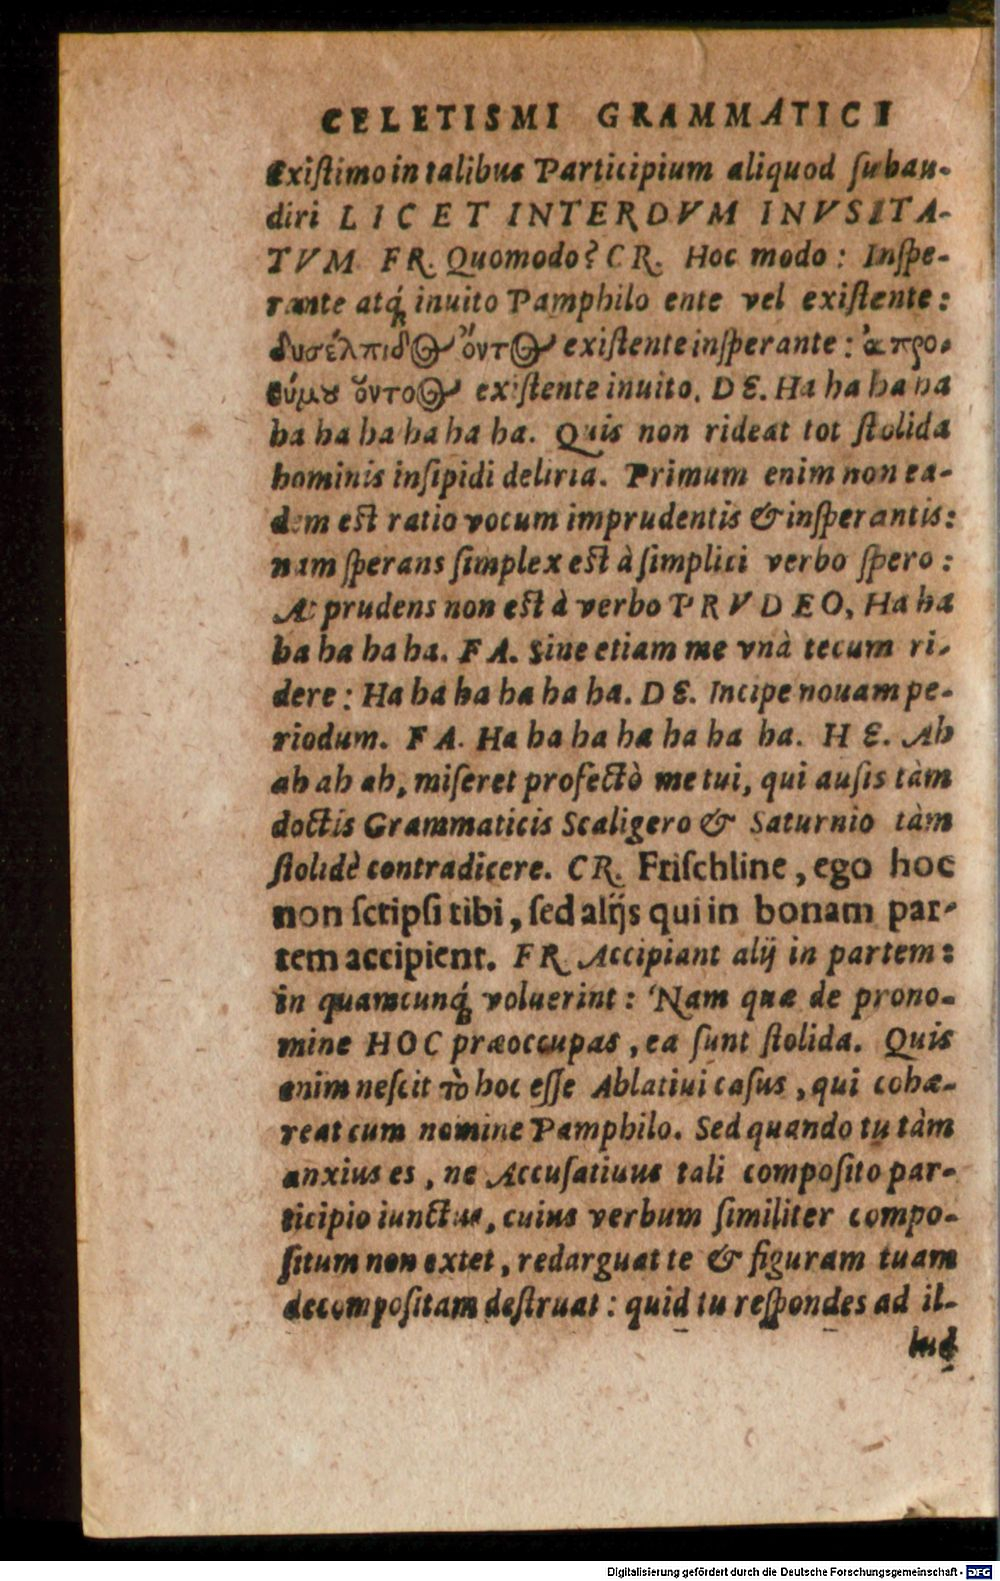 CELETISMI GRAMMATICI
Existimo in talibus Participium aliquod subau-
diri LICET INTERDVM INVSITA-
TVM FR. Quomodo? CR. Hoc modo: Inspe-
rante atq́ inuito Pamphilo ente vel existente:
δυσέλπιδος ὄντος existente insperante: ἀπρο-
θύμου ὄντος existente inuito. DE. Ha ha ha ha
ha ha ha ha ha ha. Quis non rideat tot stolida
hominis insipidi deliria. Primum enim non ea-
dem est ratio vocum imprudentis & insperantis:
nam sperans simplex est à simplici verbo spero:
At prudens non est à verbo PRVDEO, Ha ha
ha ha ha ha. FA. Sine etiam me vnà tecum ri-
dere: Ha ha ha ha ha ha. DE. Incipe nouam pe-
riodum. FA. Ha ha ha ha ha ha ha. HE. Ah
ah ah ah, miseret profectò me tui, qui ausis tàm
doctis Grammaticis Scaligero & Saturnio tàm
stolidè contradicere. CR. Frischline, ego hoc
non scripsi tibi, sed alijs qui in bonam par-
tem accipient. FR. Accipiant alij in partem:
in quamcunq́ voluerint: Nam quæ de prono-
mine HOC præoccupas, ea sunt stolida. Quis
enim nescit τὸ hoc esse Ablatiui casus, qui cohæ-
reat cum nomine Pamphilo. Sed quando tu tàm
anxius es, ne Accusatiuus tali composito par-
ticipio iunctus, cuius verbum similiter compo-
situm non extet, redarguat te & figuram tuam
decompositam destruat: quid tu respondes ad il-
lud
Digitalisierung gefördert durch die Deutsche Forschungsgemeinschaft - DFG